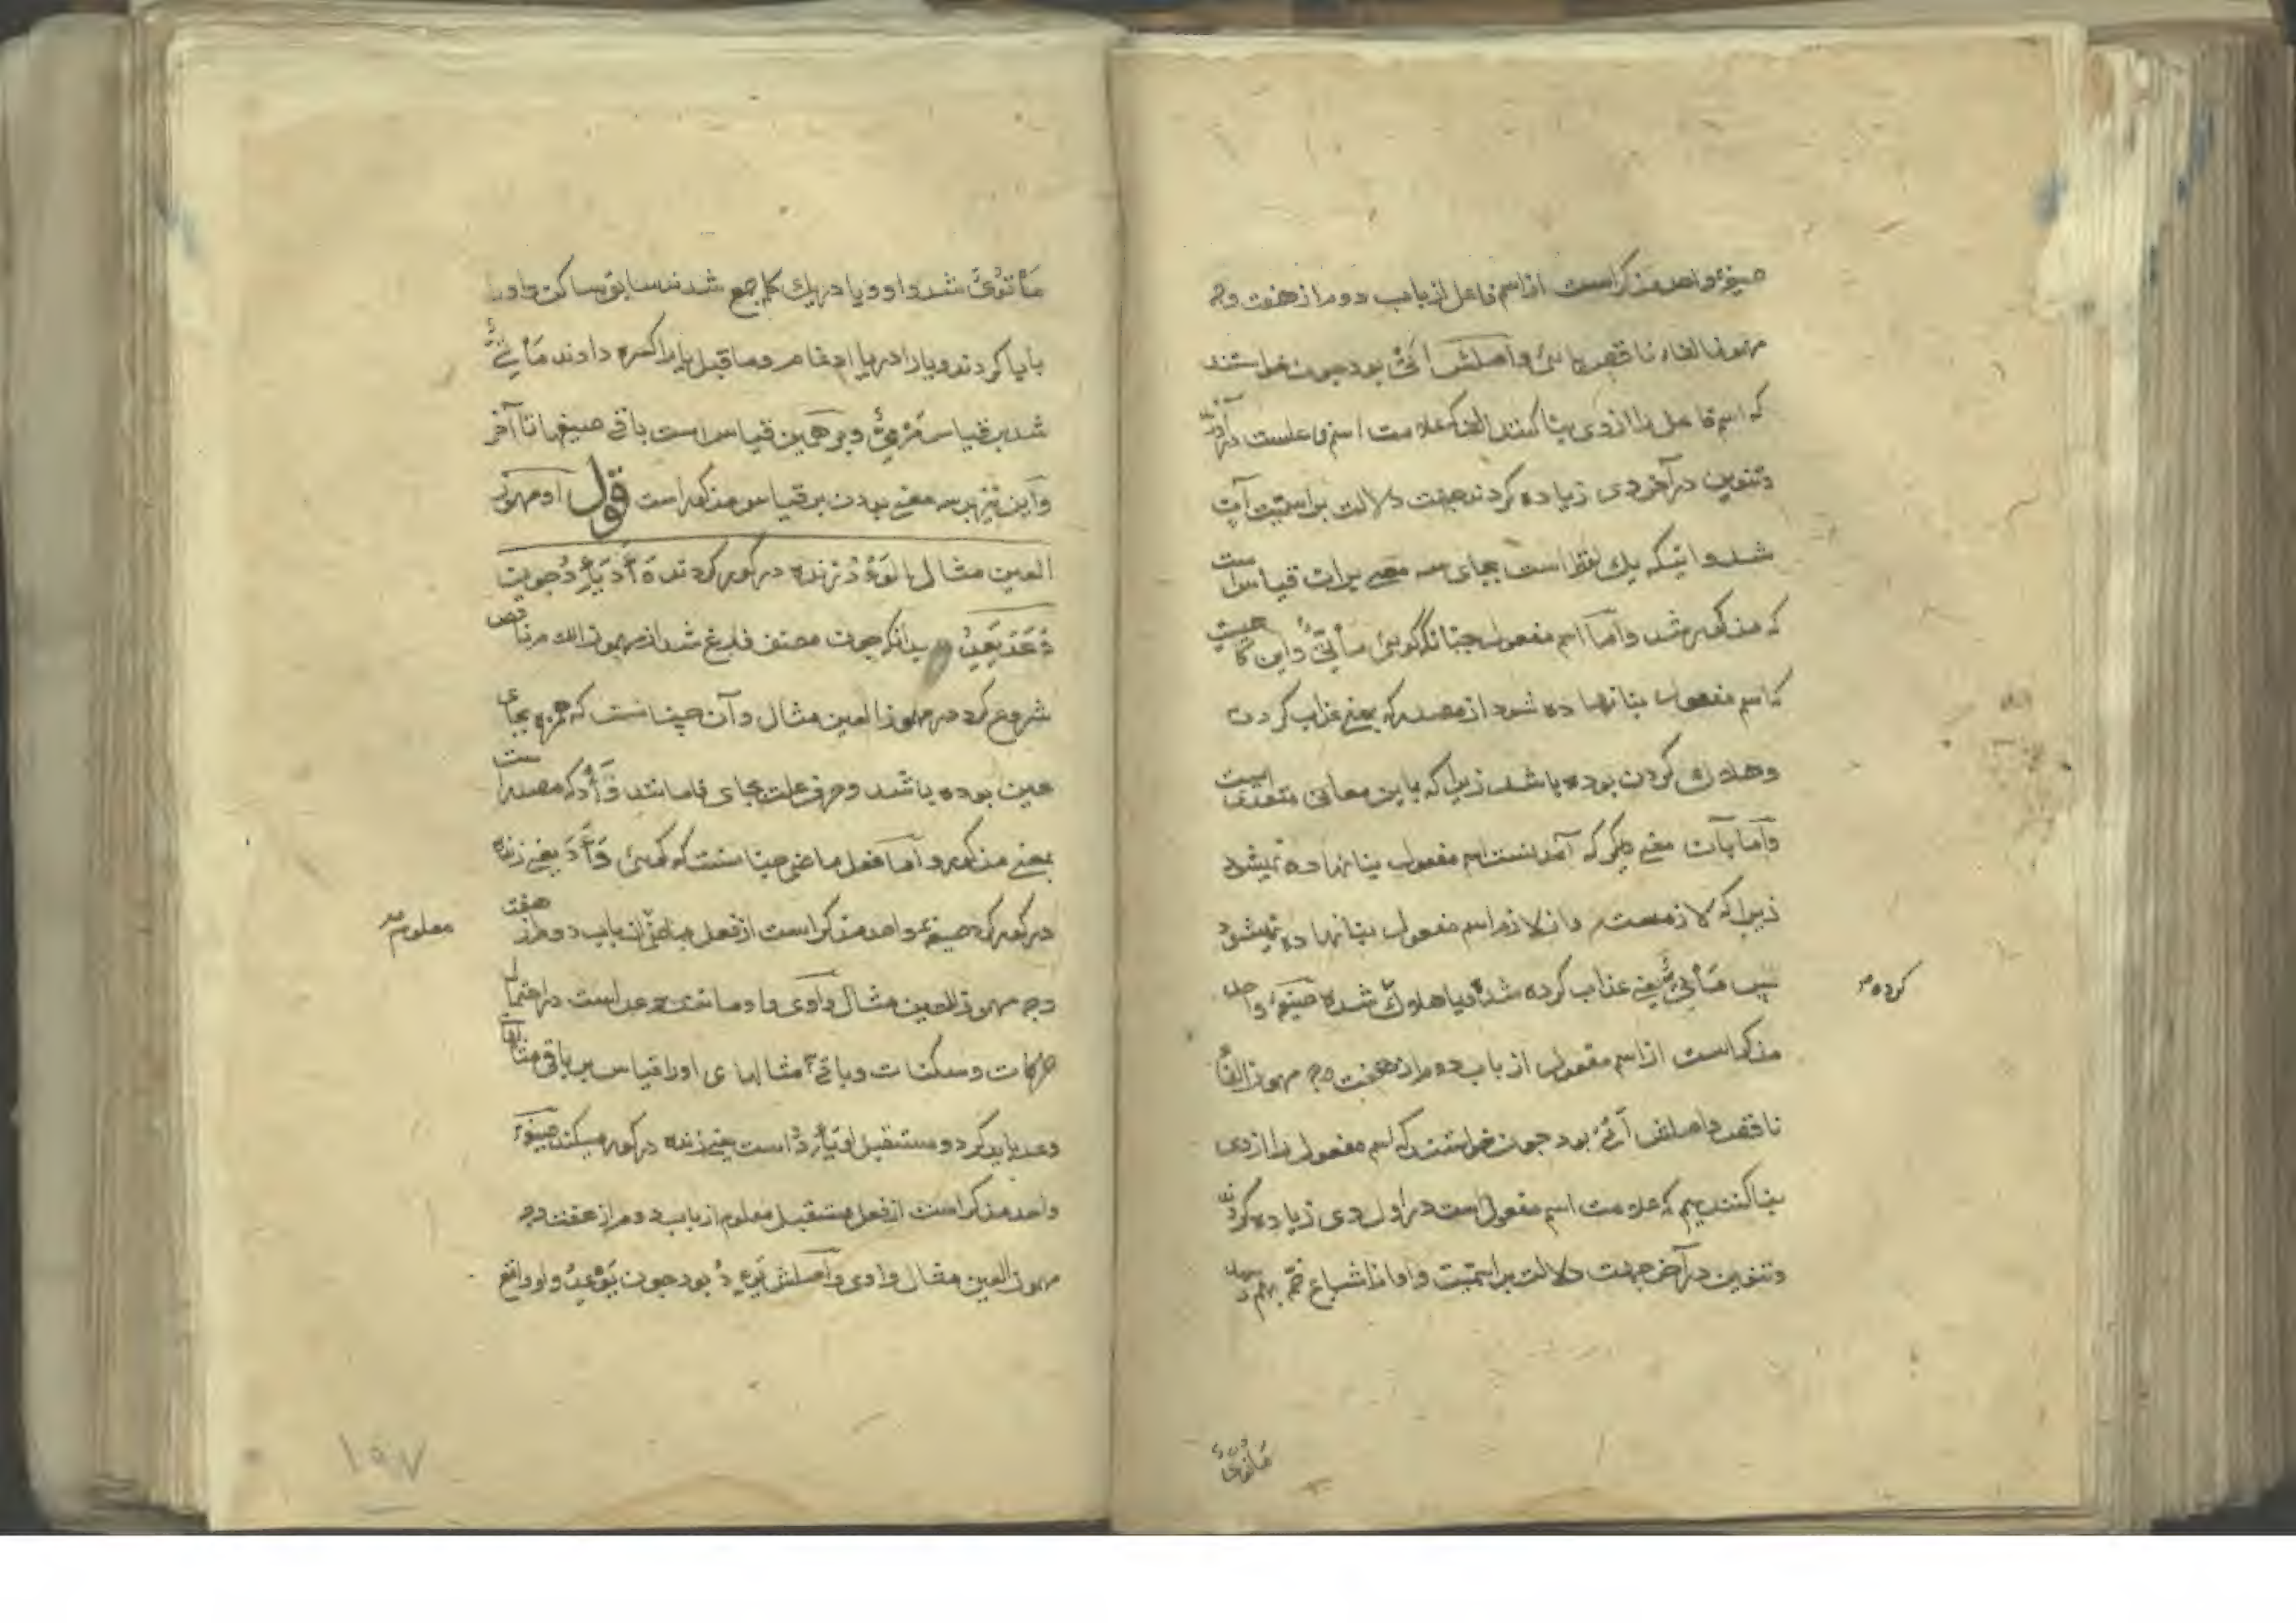 صیغهٔ واحد مذکر است از اسم فاعل از باب دوم از هفت وجه
مهموز الفاء ناقص یائی و اصلش اَتْیٌ بود چون خواستند
که اسم فاعل را از وی بنا کنند الف که علامت اسم فاعلست درآوردند
و تنوین در آخر وی زیاده کردند جهت دلالت بر اسمیت آتٍ
شد و اینکه یک لفظ است بجای سه معنی بران قیاس است
که مذکور شد و اما اسم مفعول چنانکه گوئی مأتیٌّ و این
که اسم مفعول بنا نهاده شود از مصدر که بمعنی عذاب کردن
و هلاک کردن بوده باشد زیرا که باین معانی متعدیست
و اما بآن معنی دیگر که آمدنست اسم مفعول بنا نهاده نمیشود
زیرا که لازمست و از لازم اسم مفعول بنا نهاده نمیشود
پس مَأتیٌّ یعنی عذاب کرده شده و یا هلاک شده صیغهٔ واحد
کرده
مذکر است از اسم مفعول از باب دوم از هفت وجه مهموز الفا
ناقص و اصلش اَتْیٌ بود چون خواستند که اسم مفعول را از وی
بنا کنند میم که علامت اسم مفعول است در اول وی زیاده کردند
و تنوین در آخر جهت دلالت بر اسمیت و واو از اشباع ضمه بهم رسید
مَأتُویٌ
مَأْتُویٌ شد واو و یا در یک کلمه جمع شدند سابق ساکن واو را
با یا کردند و یا را در یا ادغام و ما قبل یا را کسره دادند مَأْتِیٌّ
شد بر قیاس مَرْمِیٌّ و بر همین قیاس است باقی صیغها تا آخر
و این نیز بر سه معنی بودن بر قیاس مذکور است قول او مهموز
العین مثال الوَءْدُ زنده در گور کردن وَأَدَ یَئِدُ چون
وَعَدَ یَعِدُ بدانکه چون مصنف فارغ شد از مهموز الفاء ناقص
شروع کرد در مهموز العین مثال و آن چنانست که همزه بجای
عین بوده باشد و حرف علت بجای فا مانند وَأْد که مصدر است
بمعنی مذکور و اما فعل ماضی چنانست که گوئی وَأَدَ یعنی زنده
در گور کرد صیغهٔ واحد مذکر است از فعل ماضی از باب دوم از هفت
معلوم
وجه مهموز العین مثال واوی و او مانند وعد است در احتمال
حرکات و سکنات و باقی مثالهای او را قیاس بر باقی مثالها
وعد باید کرد و مستقبل او یَئِدُ است یعنی زنده در گور میکند صیغهٔ
واحد مذکر است از فعل مستقبل معلوم از باب دوم از هفت وجه
مهموز العین مثال واوی و اصلش یَوْءِدُ بود چون یَوْعِدُ واو واقع
۱۹۷